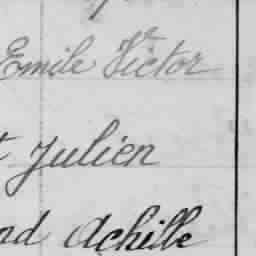 Emile Victor
Julien
Achille